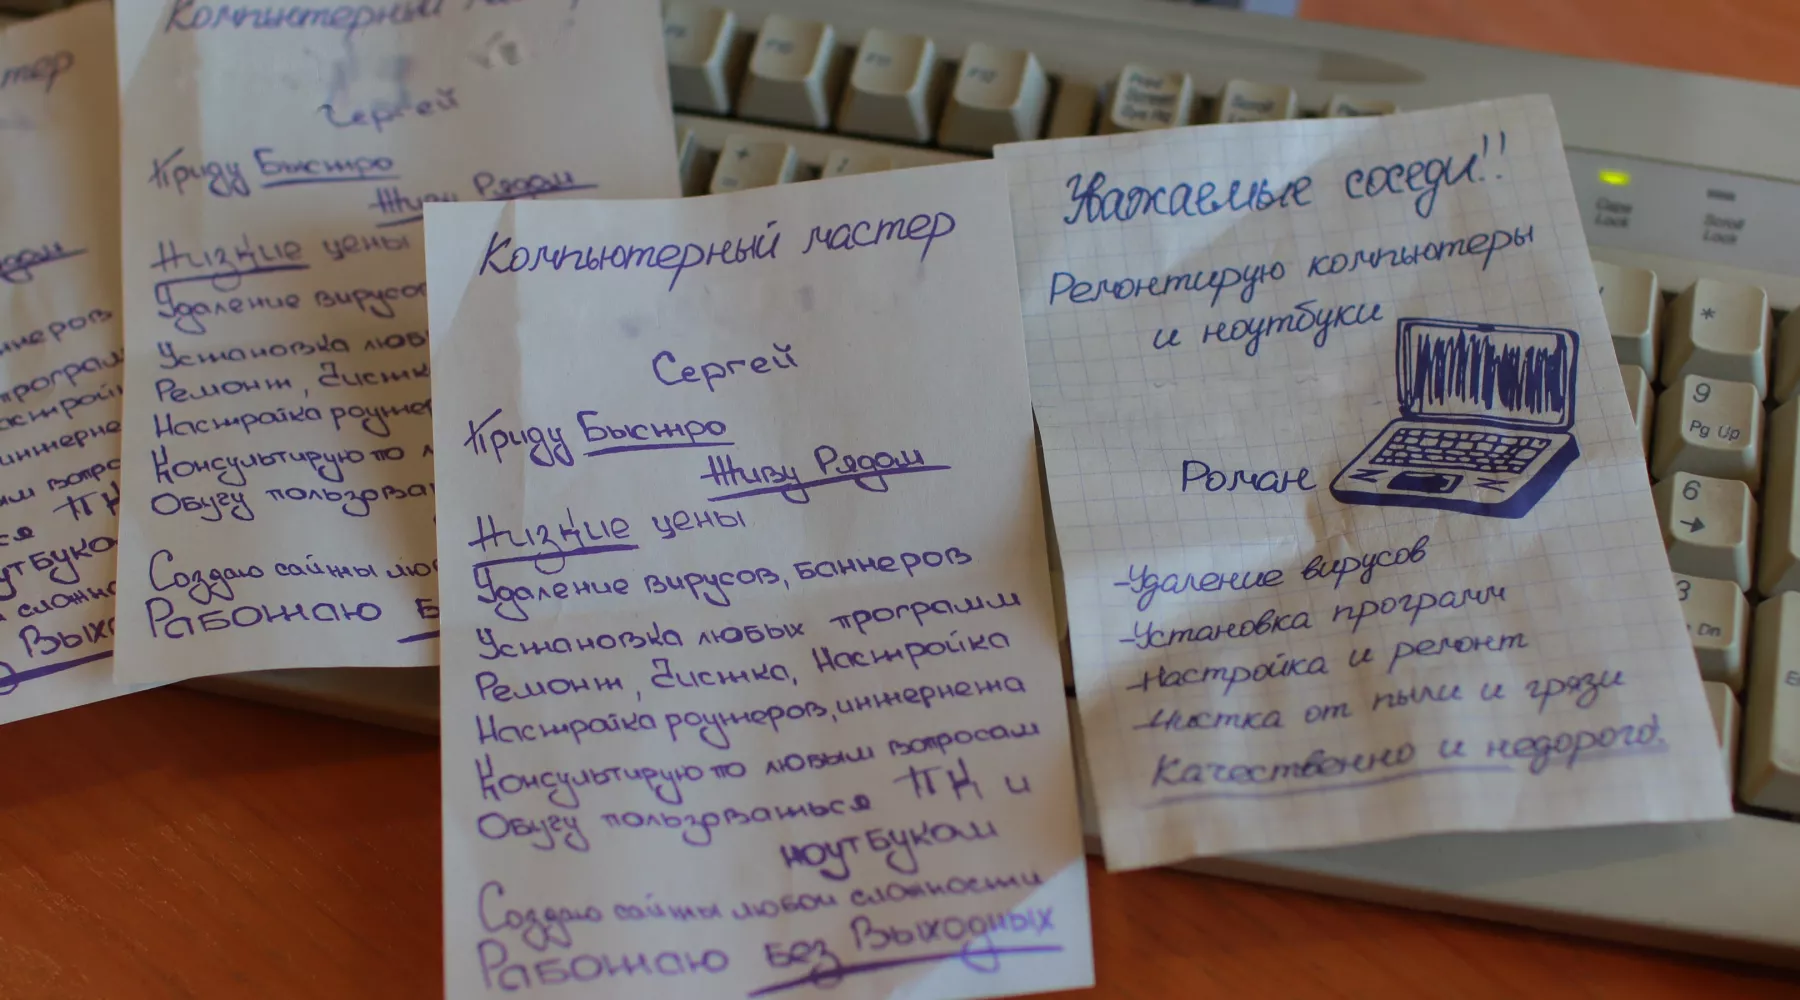 тер
Рядом
ннеров
програм
астрой
интерне
ым вопро
ся ПК
утбуко
сложно
Выхо
Компьютерный мастер
Сергей
Приду Быстро
Живу Рядом
Низкие цены
Удаление вирусов
Установка люб
Ремонт, Чистк
Настройка роутер
Консультирую по л
Обучу пользова
Создаю сайты лю
Работаю Б
Компьютерный мастер
Сергей
Приду Быстро
Живу Рядом
Низкие цены
Удаление вирусов, баннеров
Установка любых программ
Ремонт, Чистка, Настройка
Настройка роутеров, интернета
Консультирую по любым вопросам
Обучу пользоваться ПК и
ноутбуком
Создаю сайты любой сложности
Работаю Без Выходных
Уважаемые соседи!!
Ремонтирую компьютеры
и ноутбуки
Роман
-Удаление вирусов
-Установка программ
-Настройка и ремонт
-Чистка от пыли и грязи
Качественно и недорого!
F9
F10
F11
F12
Print
Screen
Sys Rq
Scroll
Caps
Lock
Scroll
Lock
*
9
Pg Up
6
→
3
Dn